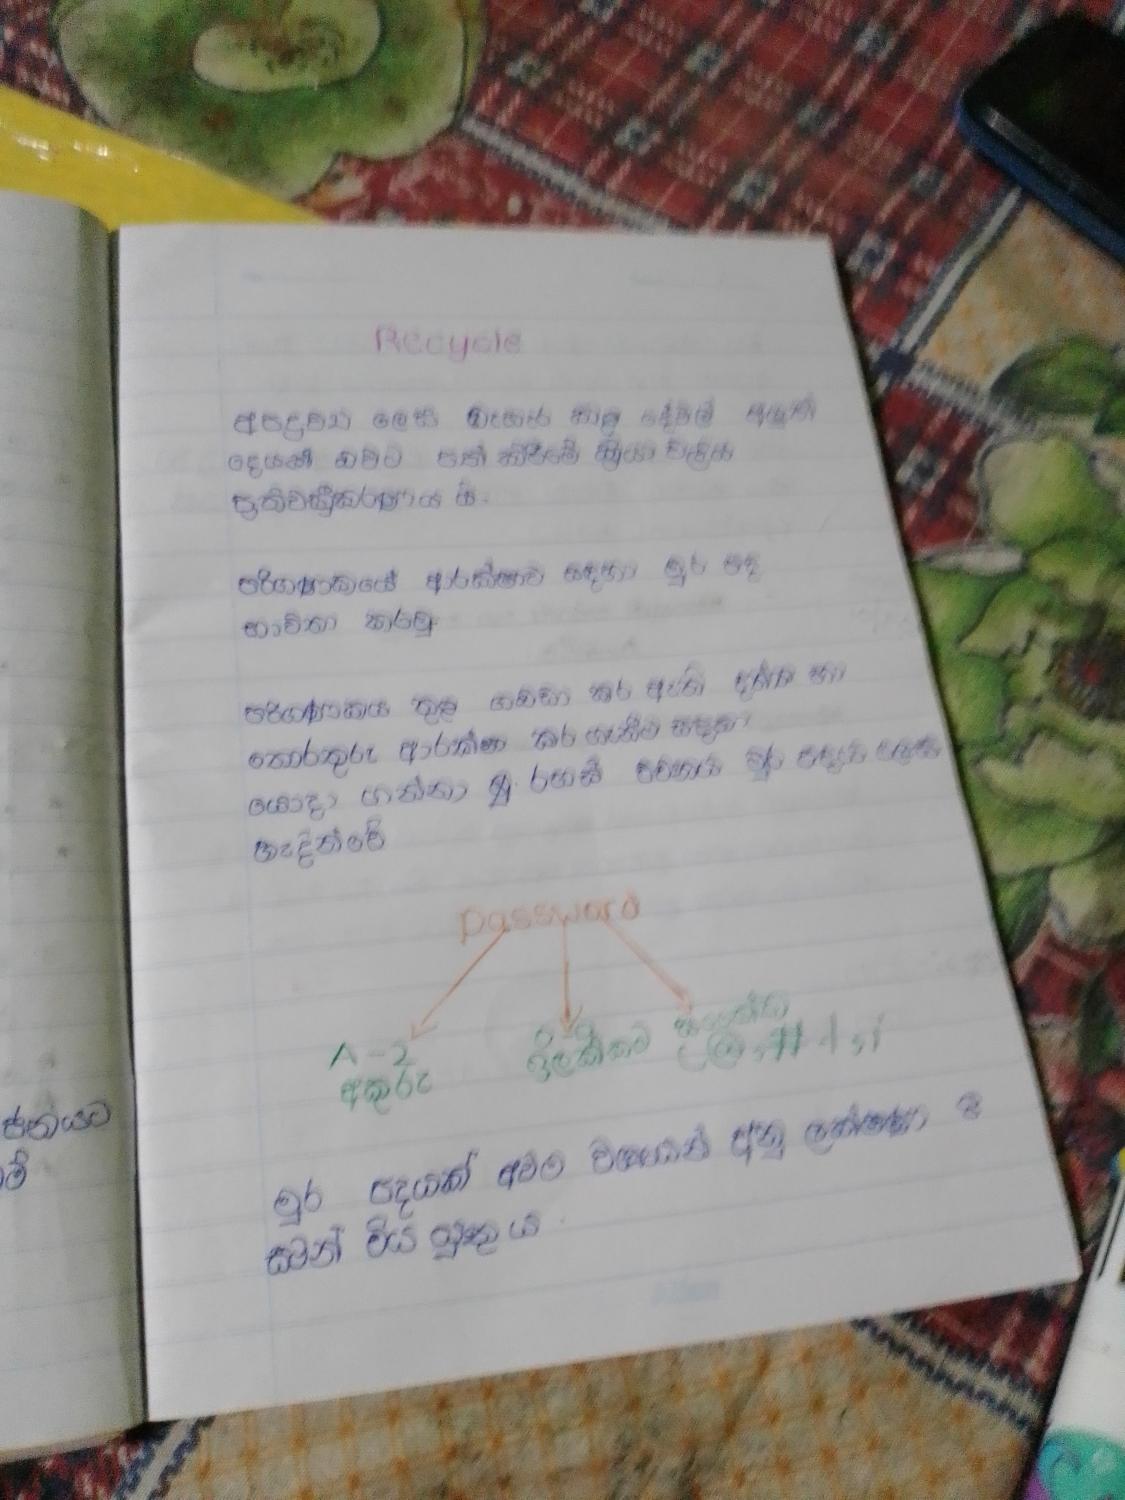 Recycle
අපද්‍රව්‍ය ලෙස බැහැර කළ දේවල් අලුත්
දෙයක් බවට පත් කිරීමේ ක්‍රියා වලිය
ප්‍රතිචක්‍රීකරණය යි.
පරිගණකයේ ආරක්ෂාව සඳහා මුර පද
භාවිතා කරමු
පරිගණකය තුළ ගබඩා කර ඇති දත්ත හා
තොරතුරු ආරක්ෂා කර ගැනීම සඳහා
යොදා ගන්නා වූ රහස් වචනය මුර පදය ලෙස
හැඳින්වේ
password
A-Z
අකුරු
ඉලක්කම්
සංකේත
@,#
මුර පදයක් අවම වශයෙන් අනු ලක්ෂණ 8
ජනයට